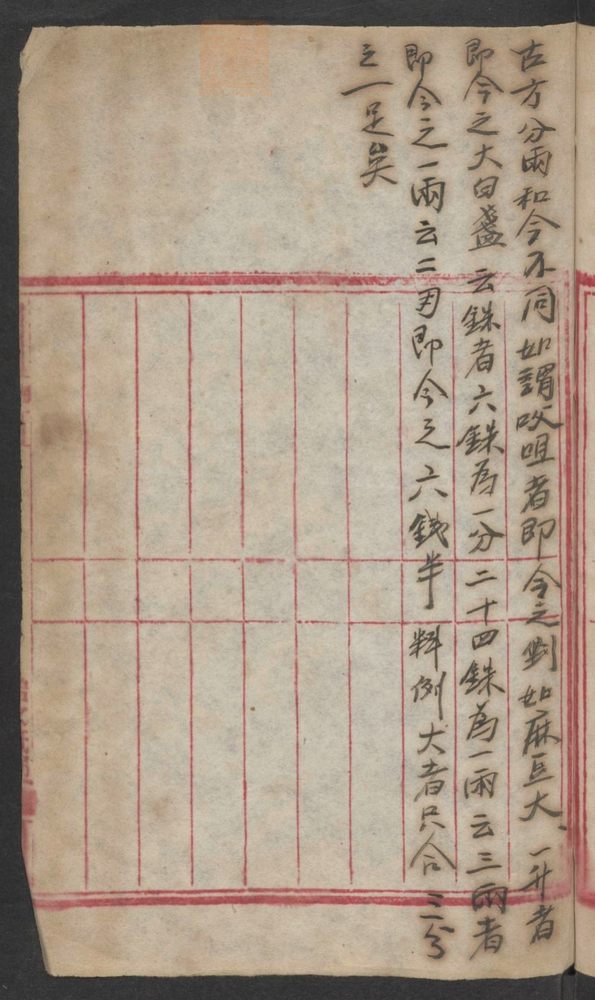 古方分兩和今不同如謂㕮咀者即今之剉如麻豆大、一升者
即今之大白盞云銖者六銖為一分二十四銖為一兩云三兩者
即今之一兩云二两即今之六錢半料例大者只合三分
之一足矣